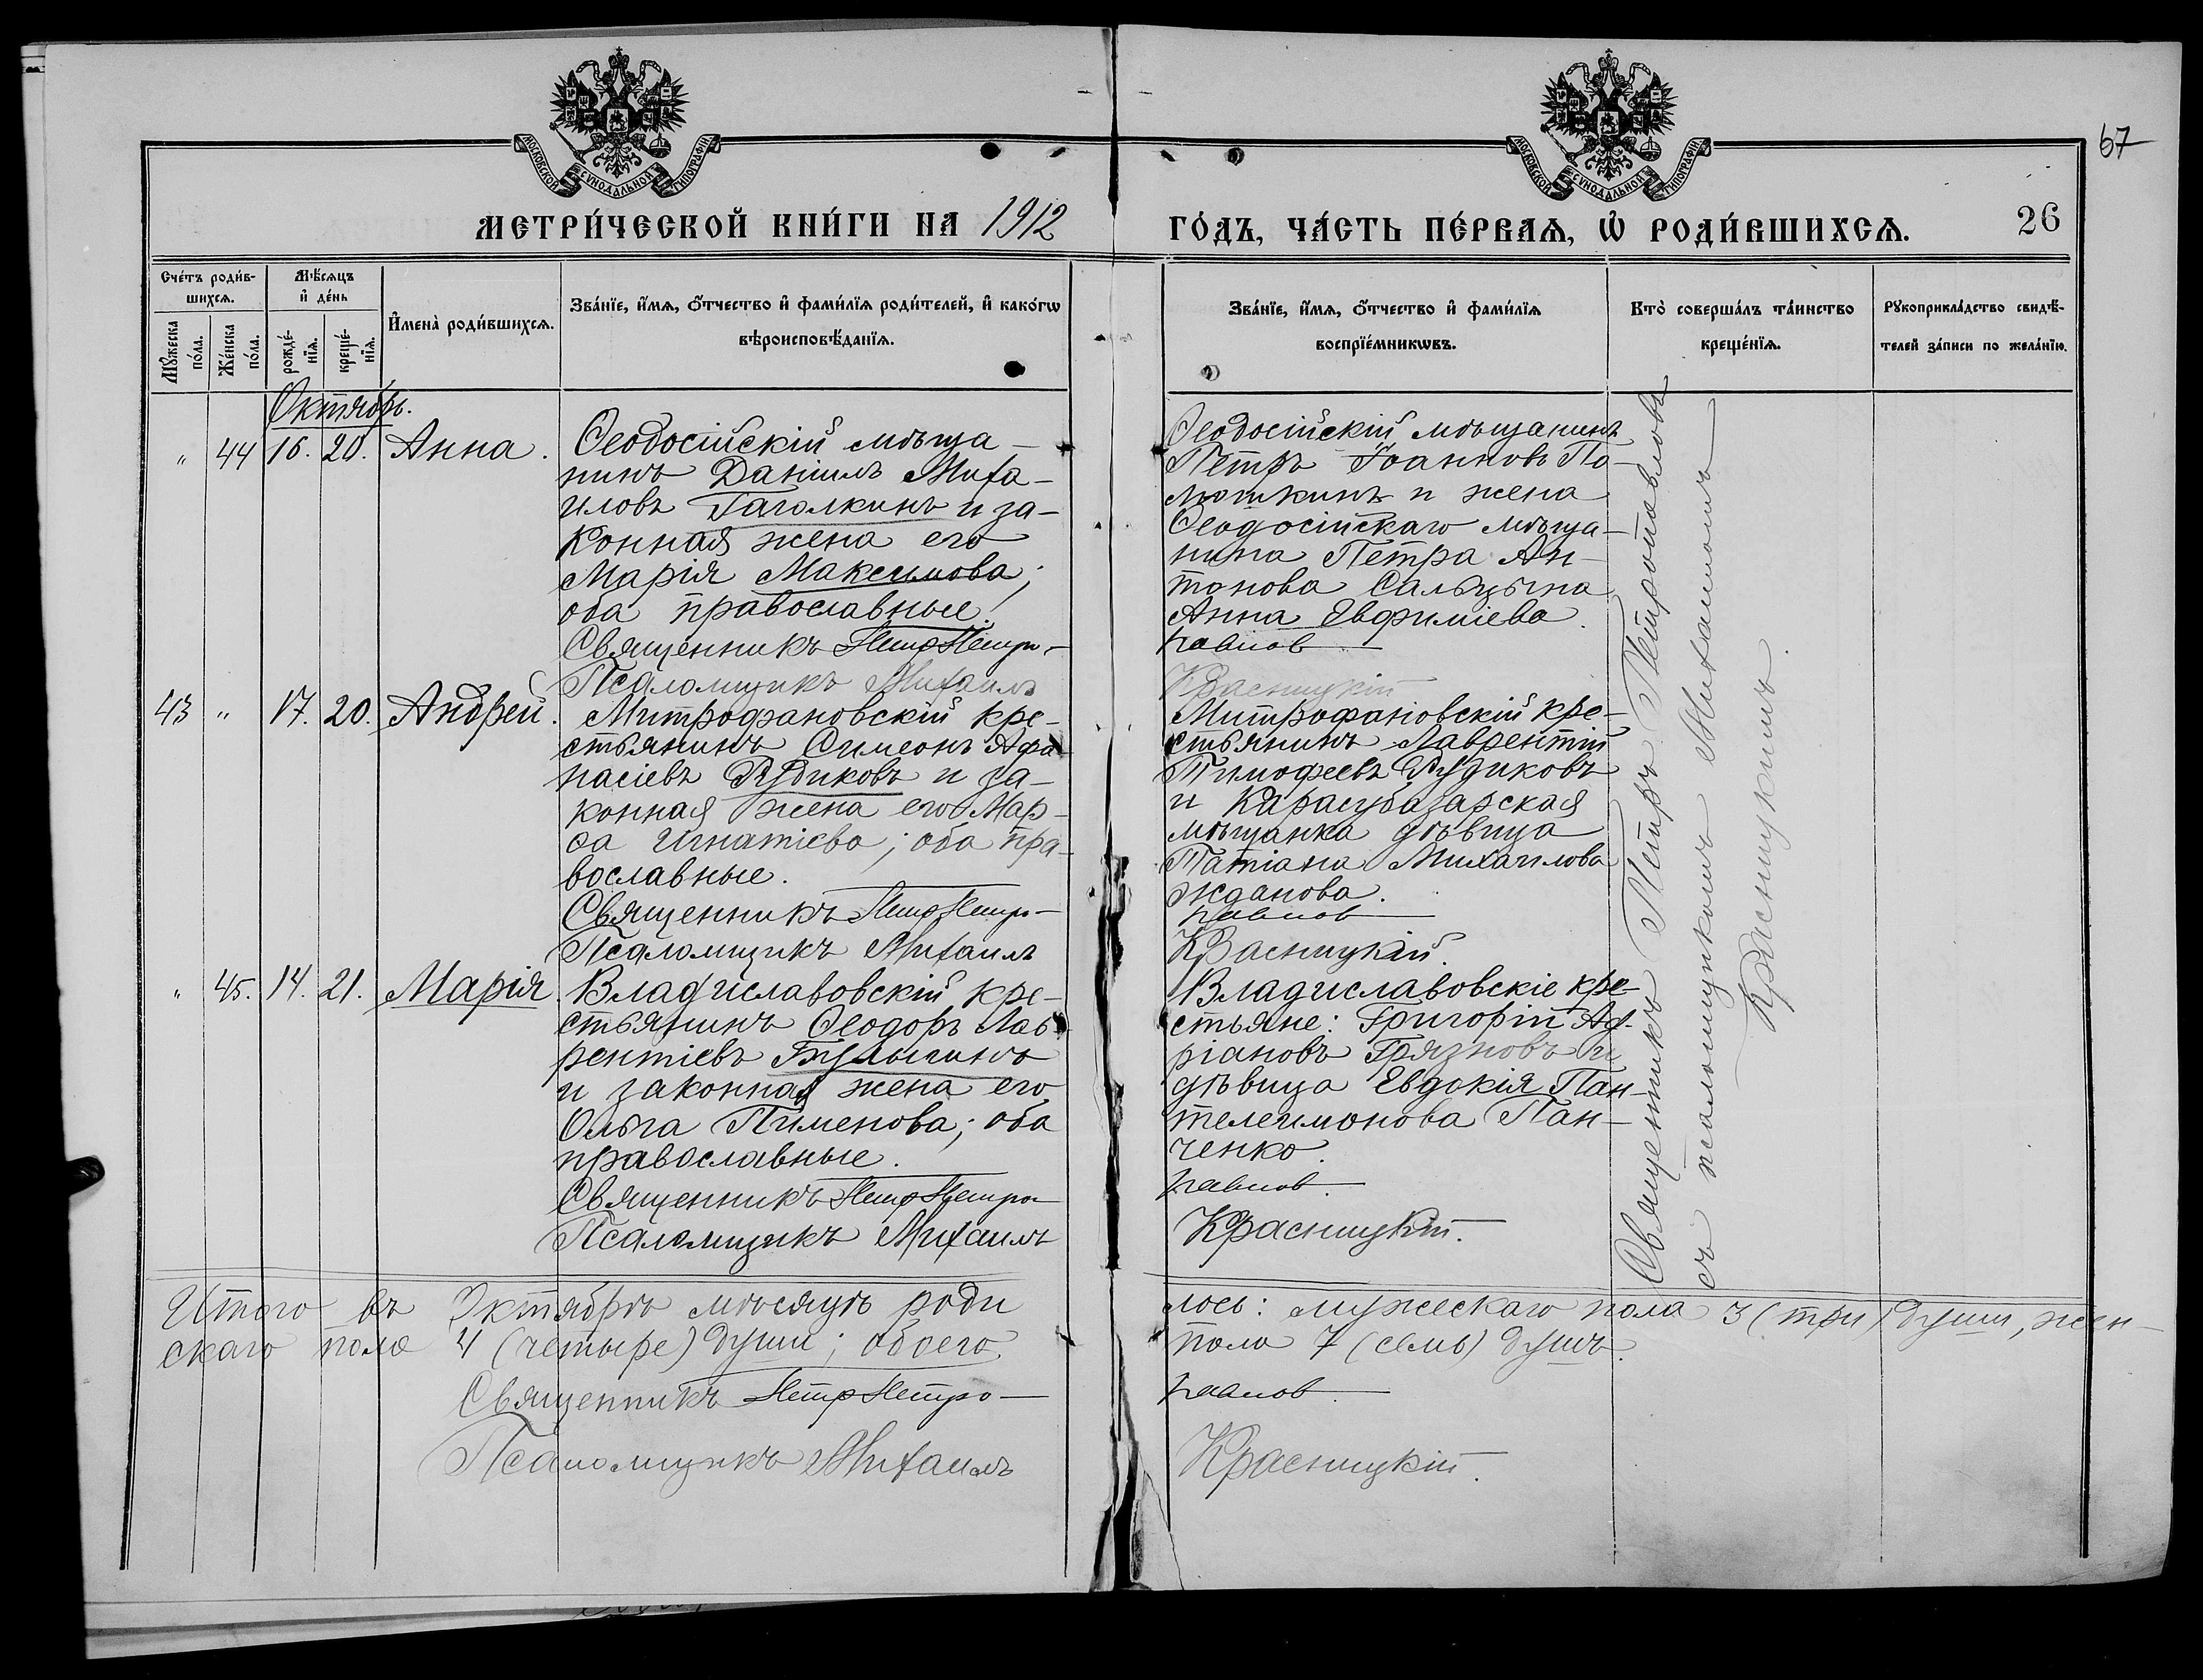 МОСКОВСКОЙ СѴНОДАЛЬНОЙ ТИПОГРАФІИ
МОСКОВСКОЙ СѴНОДАЛЬНОЙ ТИПОГРАФІИ
67
МЕТРИ́ЧЕСКОЙ КНИ́ГИ НА 1912
ГО́ДЪ, ЧА́СТЬ ПЕ́РВАѦ, Ѡ҆ РОДИ́ВШИХСѦ.
26
Сче́тъ роди́в-
шихсѧ.
Мѣ́сѧцъ
и҆ де́нь
Мꙋ́жеска
по́ла.
Же́нска
по́ла.
рожде́-
нїѧ.
креще́-
нїѧ.
И҆мена̀ роди́вшихсѧ.
Зва́нїе, и҆́мѧ, ѻ҆́тчество и҆ фами́лїѧ роди́телей, и҆ како́гѡ
вѣроисповѣ́данїѧ.
Зва́нїе, и҆́мѧ, ѻ҆́тчество и҆ фами́лїѧ
воспрїе́мникѡвъ.
Кто̀ соверша́лъ та́инство
креще́нїѧ.
Рꙋкоприкла́дство свидѣ́-
телей за́писи по жела́нїю.
Октябрь.
" 44 16. 20. Анна.
Ѳеодосійскій мѣща-
нинъ Даніилъ Миха-
иловъ Гаголкинъ и за-
конная жена его
Марія Максимова;
оба православные.
Священникъ Петръ Петро-
Псаломщикъ Михаилъ
Ѳеодосійскій мѣщанинъ
Петръ Іоанновъ По-
лоткинъ и жена
Ѳеодосійскаго мѣща-
нина Петра Ан-
тонова Сальцына
Анна Евфиміева.
павлов
Красницкій
43 " 17. 20. Андрей.
Митрофановскій кре-
стьянинъ Симеонъ Афа-
насіевъ Рудиковъ и за-
конная жена его Мар-
ѳа Игнатіева; оба пра-
вославные.
Священникъ Петръ Петро-
Псаломщикъ Михаилъ
Митрофановскій кре-
стьянинъ Лаврентій
Тимофеевъ Рудиковъ
и Карасубазарская
мѣщанка дѣвица
Татіана Михаилова
Жданова.
павлов
Красницкій.
" 45. 14. 21. Марія.
Владиславовскій кре-
стьянинъ Ѳеодоръ Лав-
рентіевъ Булыгинъ
и законная жена его
Ольга Пименова; оба
православные.
Священникъ Петръ Петро-
Псаломщикъ Михаилъ
Владиславовскіе кре-
стьяне: Григорій Ад-
ріановъ Грязновъ и
дѣвица Евдокія Пан-
телеимонова Пан-
ченко.
павлов
Красницкій.
Священникъ Петръ Петропавловъ
съ псаломщикомъ Михаиломъ
Красницкимъ.
Итого въ Октябрѣ мѣсяцѣ роди
лось: мужескаго пола 3 (три) души, жен-
скаго пола 4 (четыре) души; обоего
пола 7 (семь) душъ.
Священникъ Петръ Петро-
павлов
Псаломщикъ Михаилъ
Красницкій.